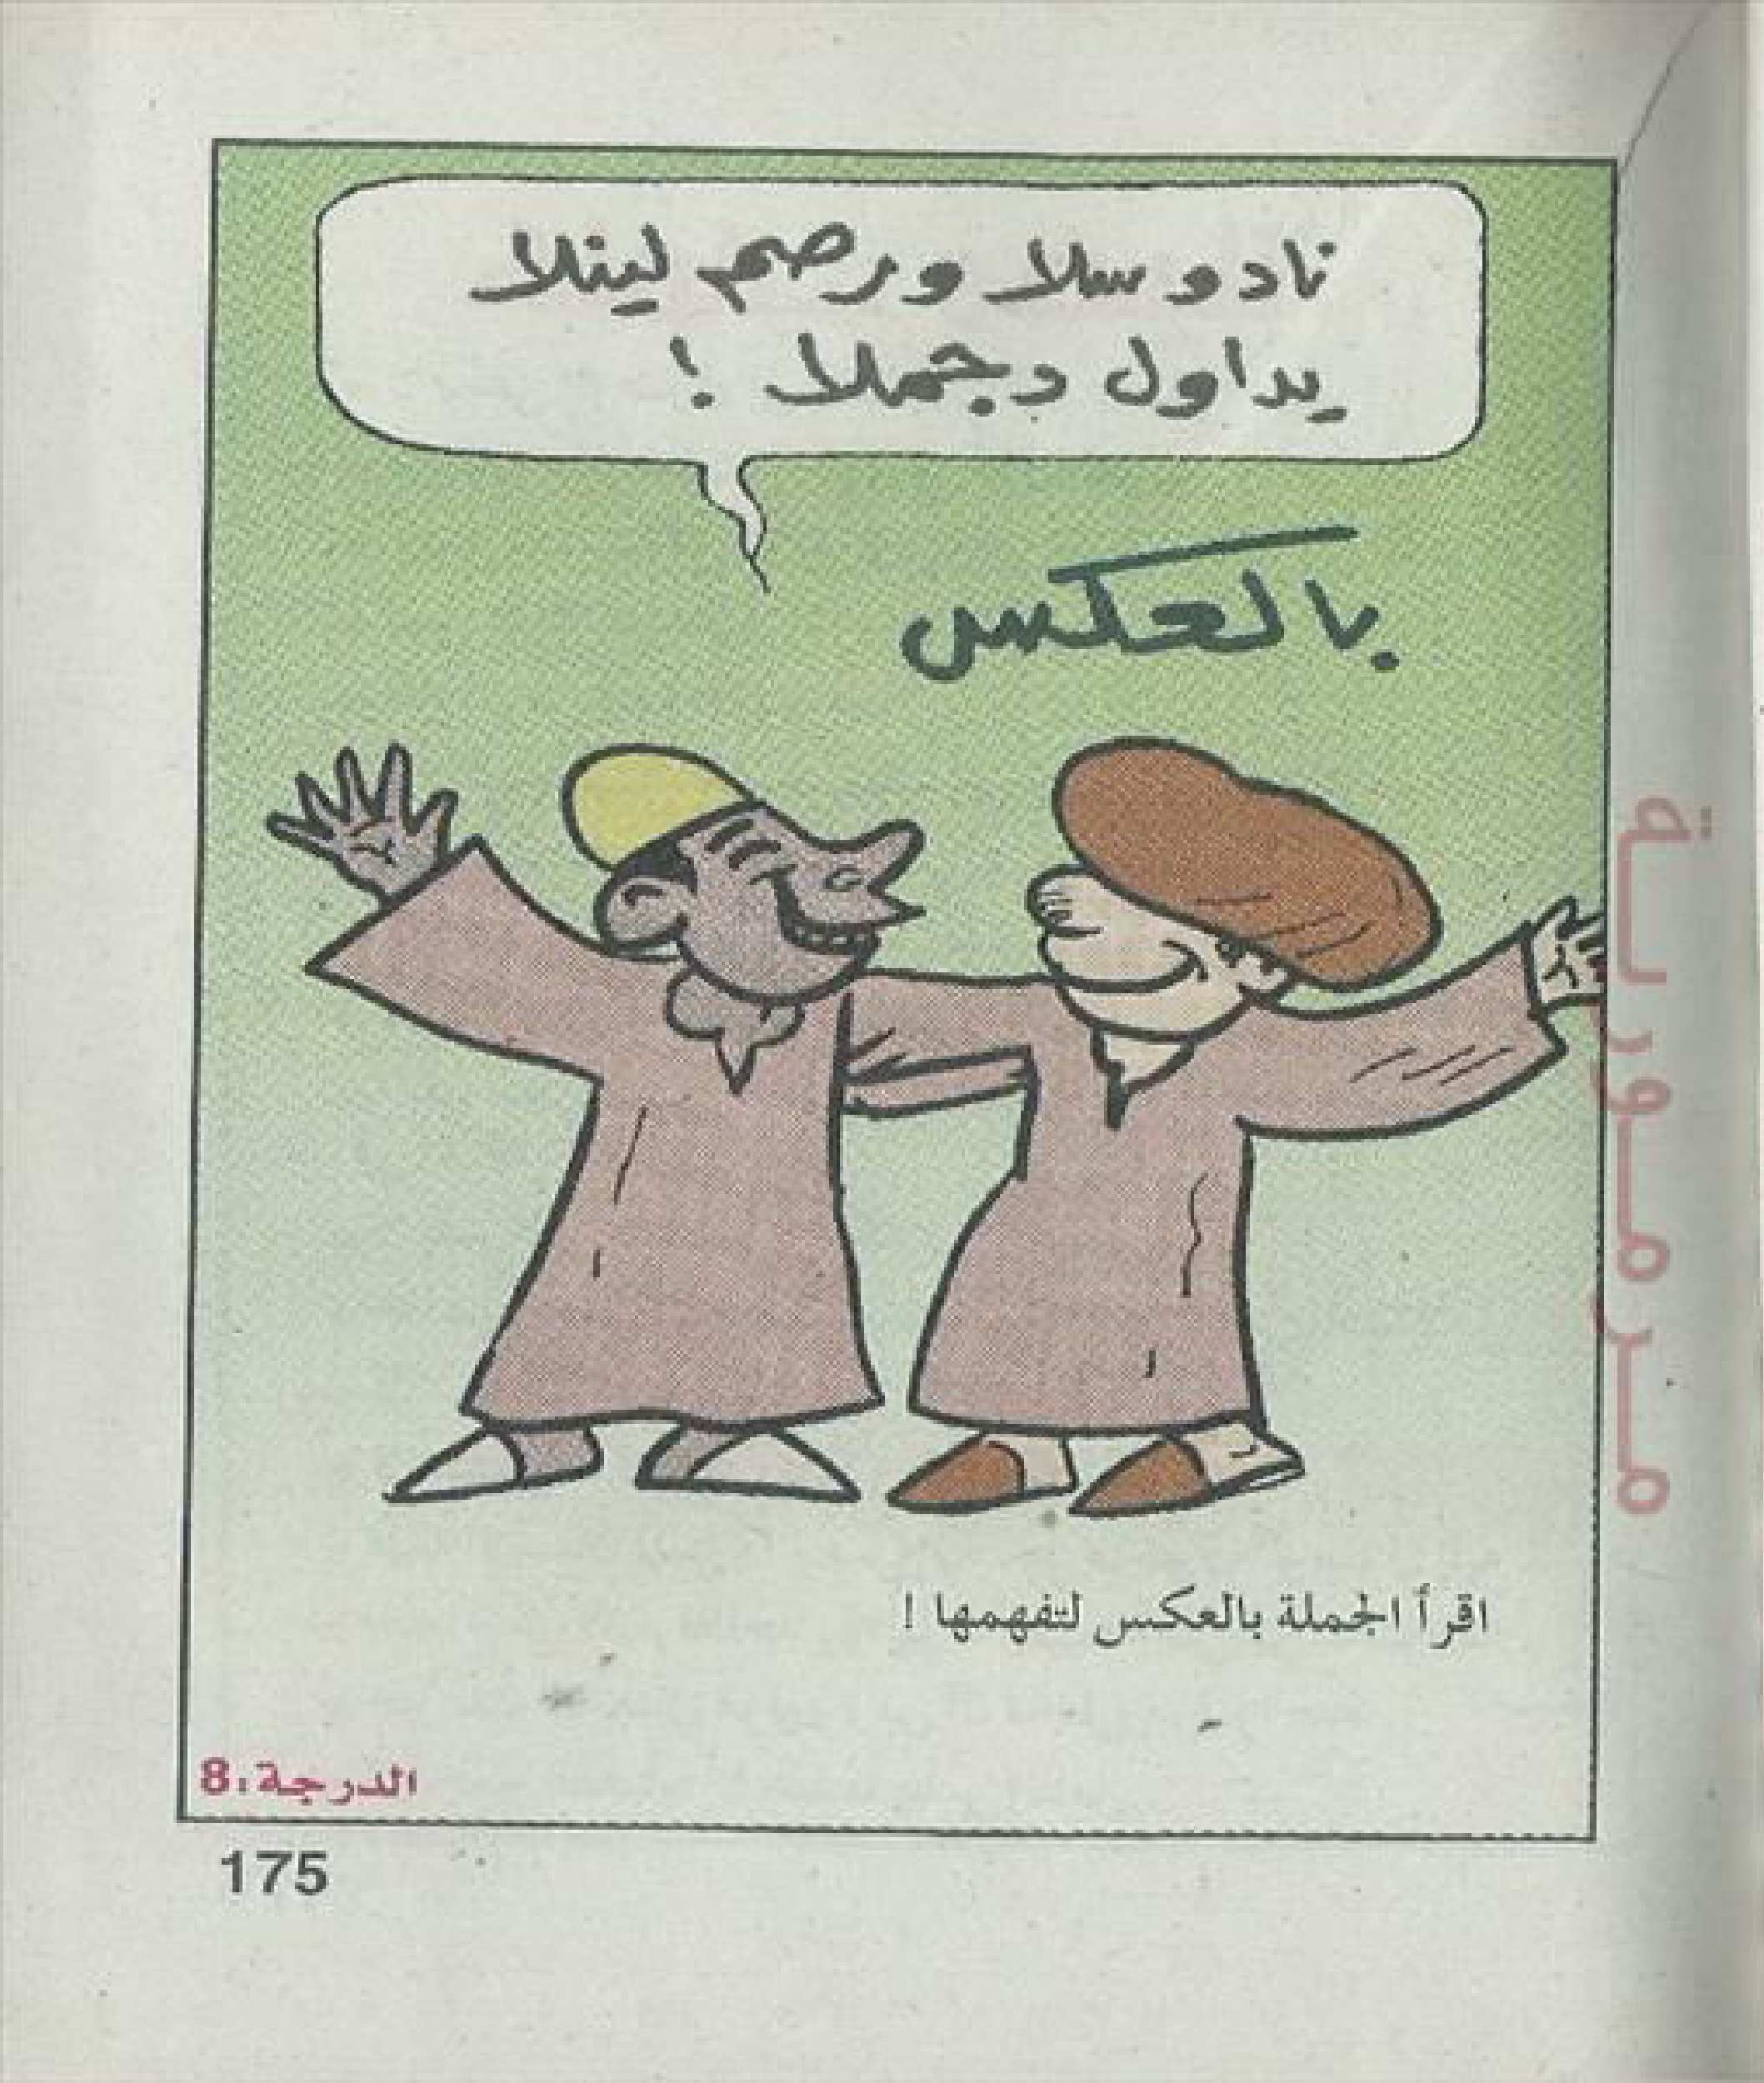 نادوسلا ورصم لينلا
يداول دجملا !
بالعكس
اقرأ الجملة بالعكس لتفهمها !
الدرجة:8
175